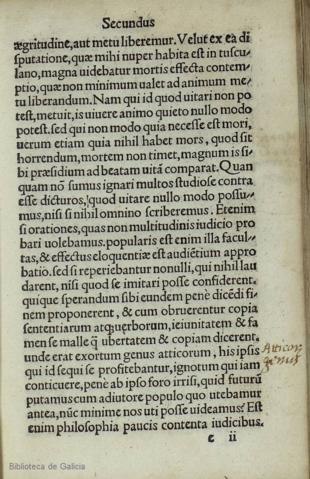 Secundus
ægritudine, aut metu liberemur. Velut ex ea di
sputatione, quæ mihi nuper habita est in tuscu
lano, magna uidebatur mortis effecta contem⸗
ptio, quæ non minimum ualet ad animum me⸗
tu liberandum. Nam qui id quod uitari non po
test, metuit, is uiuere animo quieto nullo modo
potest. sed qui non modo quia necesse est mori,
uerum etiam quia nihil habet mors, quod sit
horrendum, mortem non timet, magnum is si⸗
bi præsidium ad beatam uitā comparat. Quan
quam nō sumus ignari multos studiose contra
esse dicturos, quod uitare nullo modo possu⸗
mus, nisi si nihil omnino scriberemus. Etenim
si orationes, quas non multitudinis iudicio pro
bari uolebamus. popularis est enim illa facul⸗
tas, & effectus eloquentiæ est audiētium appro
batio. sed si reperiebantur nonulli, qui nihil lau
darent, nisi quod se imitari posse confiderent.
quique sperandum sibi eundem penè dicēdi fi⸗
nem proponerent, & cum obruerentur copia
sententiarum atq; uerborum, ieiunitatem & fa
men se malle q̄ ubertatem & copiam dicerent.
unde erat exortum genus atticorum, his ipsis
qui id sequi se profitebantur, ignotum qui iam
conticuere, penè ab ipso foro irrisi, quid futurū
putamus cum adiutore populo quo utebamur
antea, nūc minime nos uti posse uideamus? Est
enim philosophia paucis contenta iudicibus.
c ii
Atticor
genus
Biblioteca de Galicia